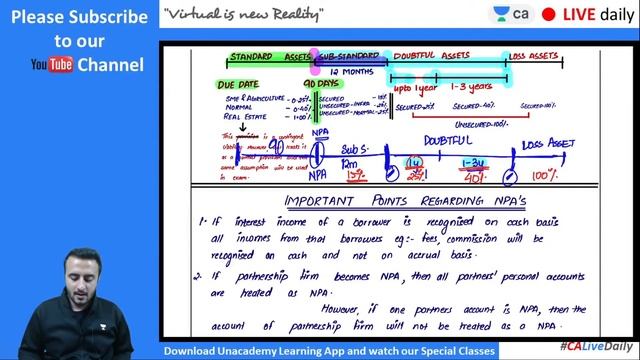 Please Subscribe
to our
YouTube Channel
"Virtual is new Reality"
ca
LIVE daily
STANDARD ASSETS SUB-STANDARD DOUBTFUL ASSETS LOSS ASSETS
12 MONTHS
upto 1 year 1-3 years
DUE DATE 90 DAYS
SME & AGRICULTURE - 0.25%
NORMAL - 0.40%
REAL ESTATE - 1.00%
SECURED - 15%
UNSECURED-INFRA - 20%
UNSECURED-NORMAL - 25%
SECURED-25% SECURED-40% SECURED-100%
UNSECURED-100%
This provision is a contingent
90
NPA
Sub S. DOUBTFUL LOSS ASSET
12m 1y 1-3y
same assumption will be used
in exam.
NPA 15% 25% 40% 100%
IMPORTANT POINTS REGARDING NPA's
1. If interest income of a borrower is recognised on cash basis
all incomes from that borrowers eg:- fees, commission will be
recognised on cash and not on accrual basis.
2. If partnership firm becomes NPA, then all partners' personal accounts
are treated as NPA.
However, if one partners account is NPA, then the
account of partnership firm will not be treated as a NPA.
Download Unacademy Learning App and watch our Special Classes
#CALiveDaily